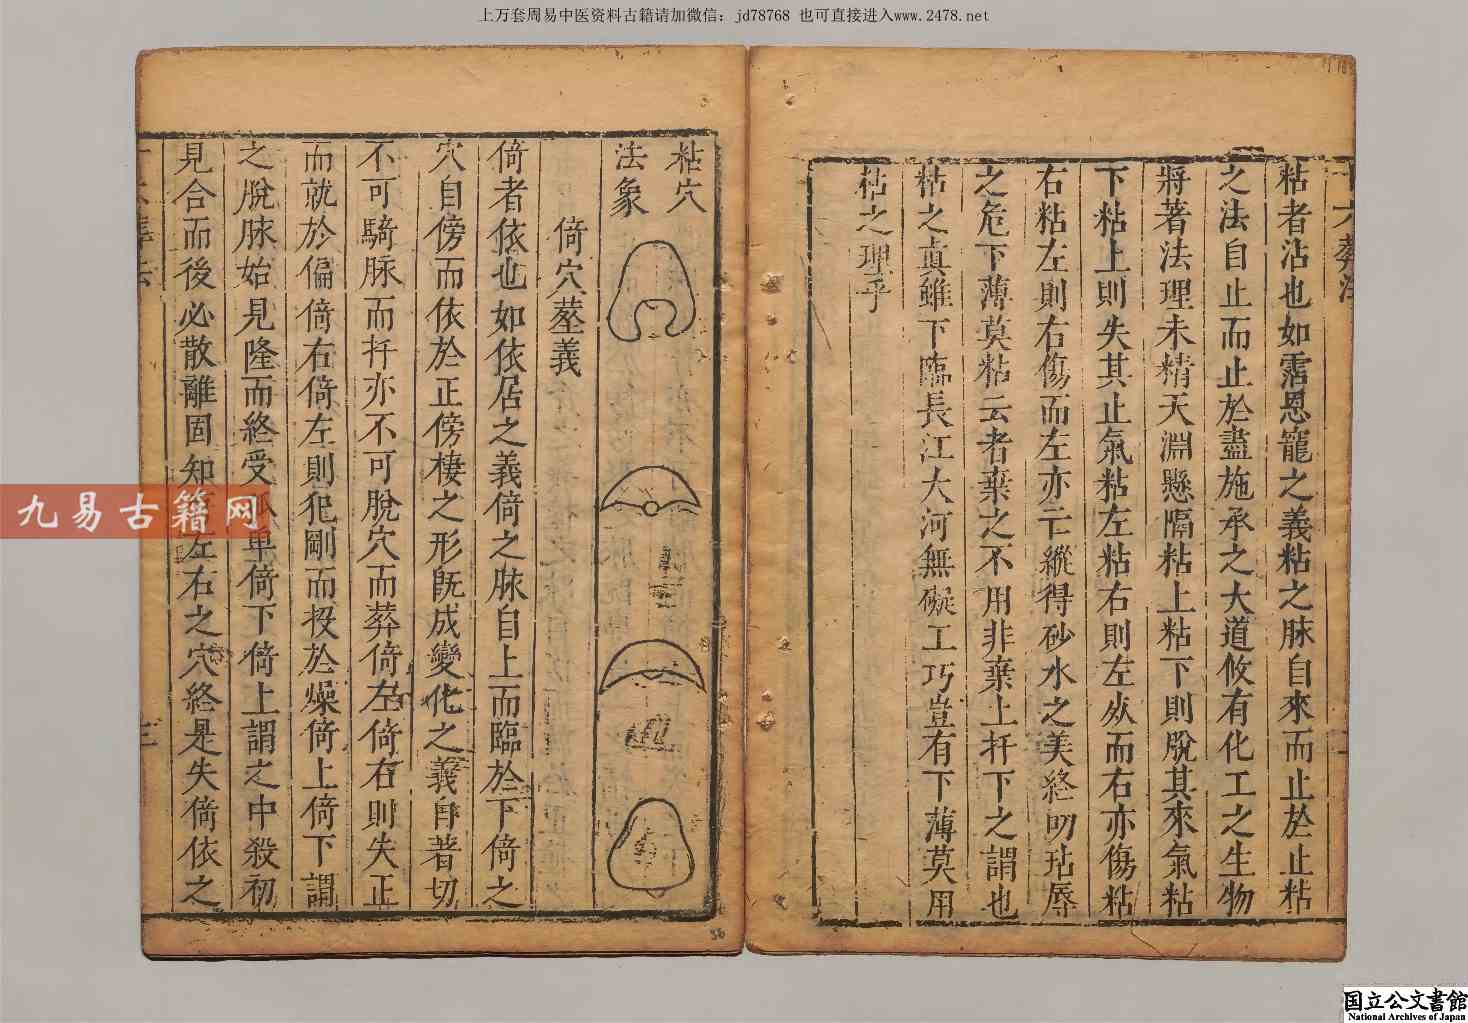 上万套周易中医资料古籍请加微信：jd78768 也可直接进入www.2478.net
十六葬法
粘者沾也如霑恩寵之義粘之脉自來而止於止粘
之法自止而止於盡施承之大道攸有化工之生物
將著法理未精天淵懸隔粘上粘下則脫其來氣粘
下粘上則失其止氣粘左粘右則左从而右亦傷粘
右粘左則右傷而左亦亏縱得砂水之美終叨玷辱
之危下薄莫粘云者棄之不用非棄上扦下之謂也
粘之真雖下臨長江大河無礙工巧豈有下薄莫用
粘之理乎
粘穴
法象
倚穴葬義
倚者依也如依居之義倚之脉自上而臨於下倚之
穴自傍而依於正傍棲之形旣成變化之義自著切
不可騎脉而扦亦不可脫穴而葬倚左倚右則失正
而就於偏倚右倚左則犯剛而投於燥倚上倚下謂
之脫脉始見隆而終受孤單倚下倚上謂之中殺初
見合而後必散離固知左右之穴終是失倚依之
三
56
九易古籍网
国立公文書館
National Archives of Japan